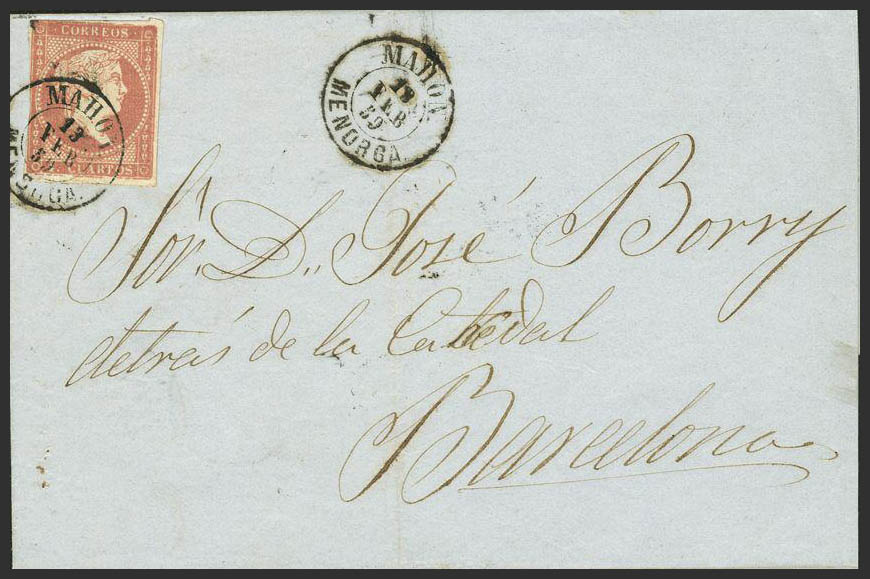 CORREOS
CUARTOS
MAHON
13
FEB
59
MENORCA.
MAHON
13
FEB
59
MENORCA.
Sor. D. José Borry
detrás de la Catedral
Barcelona